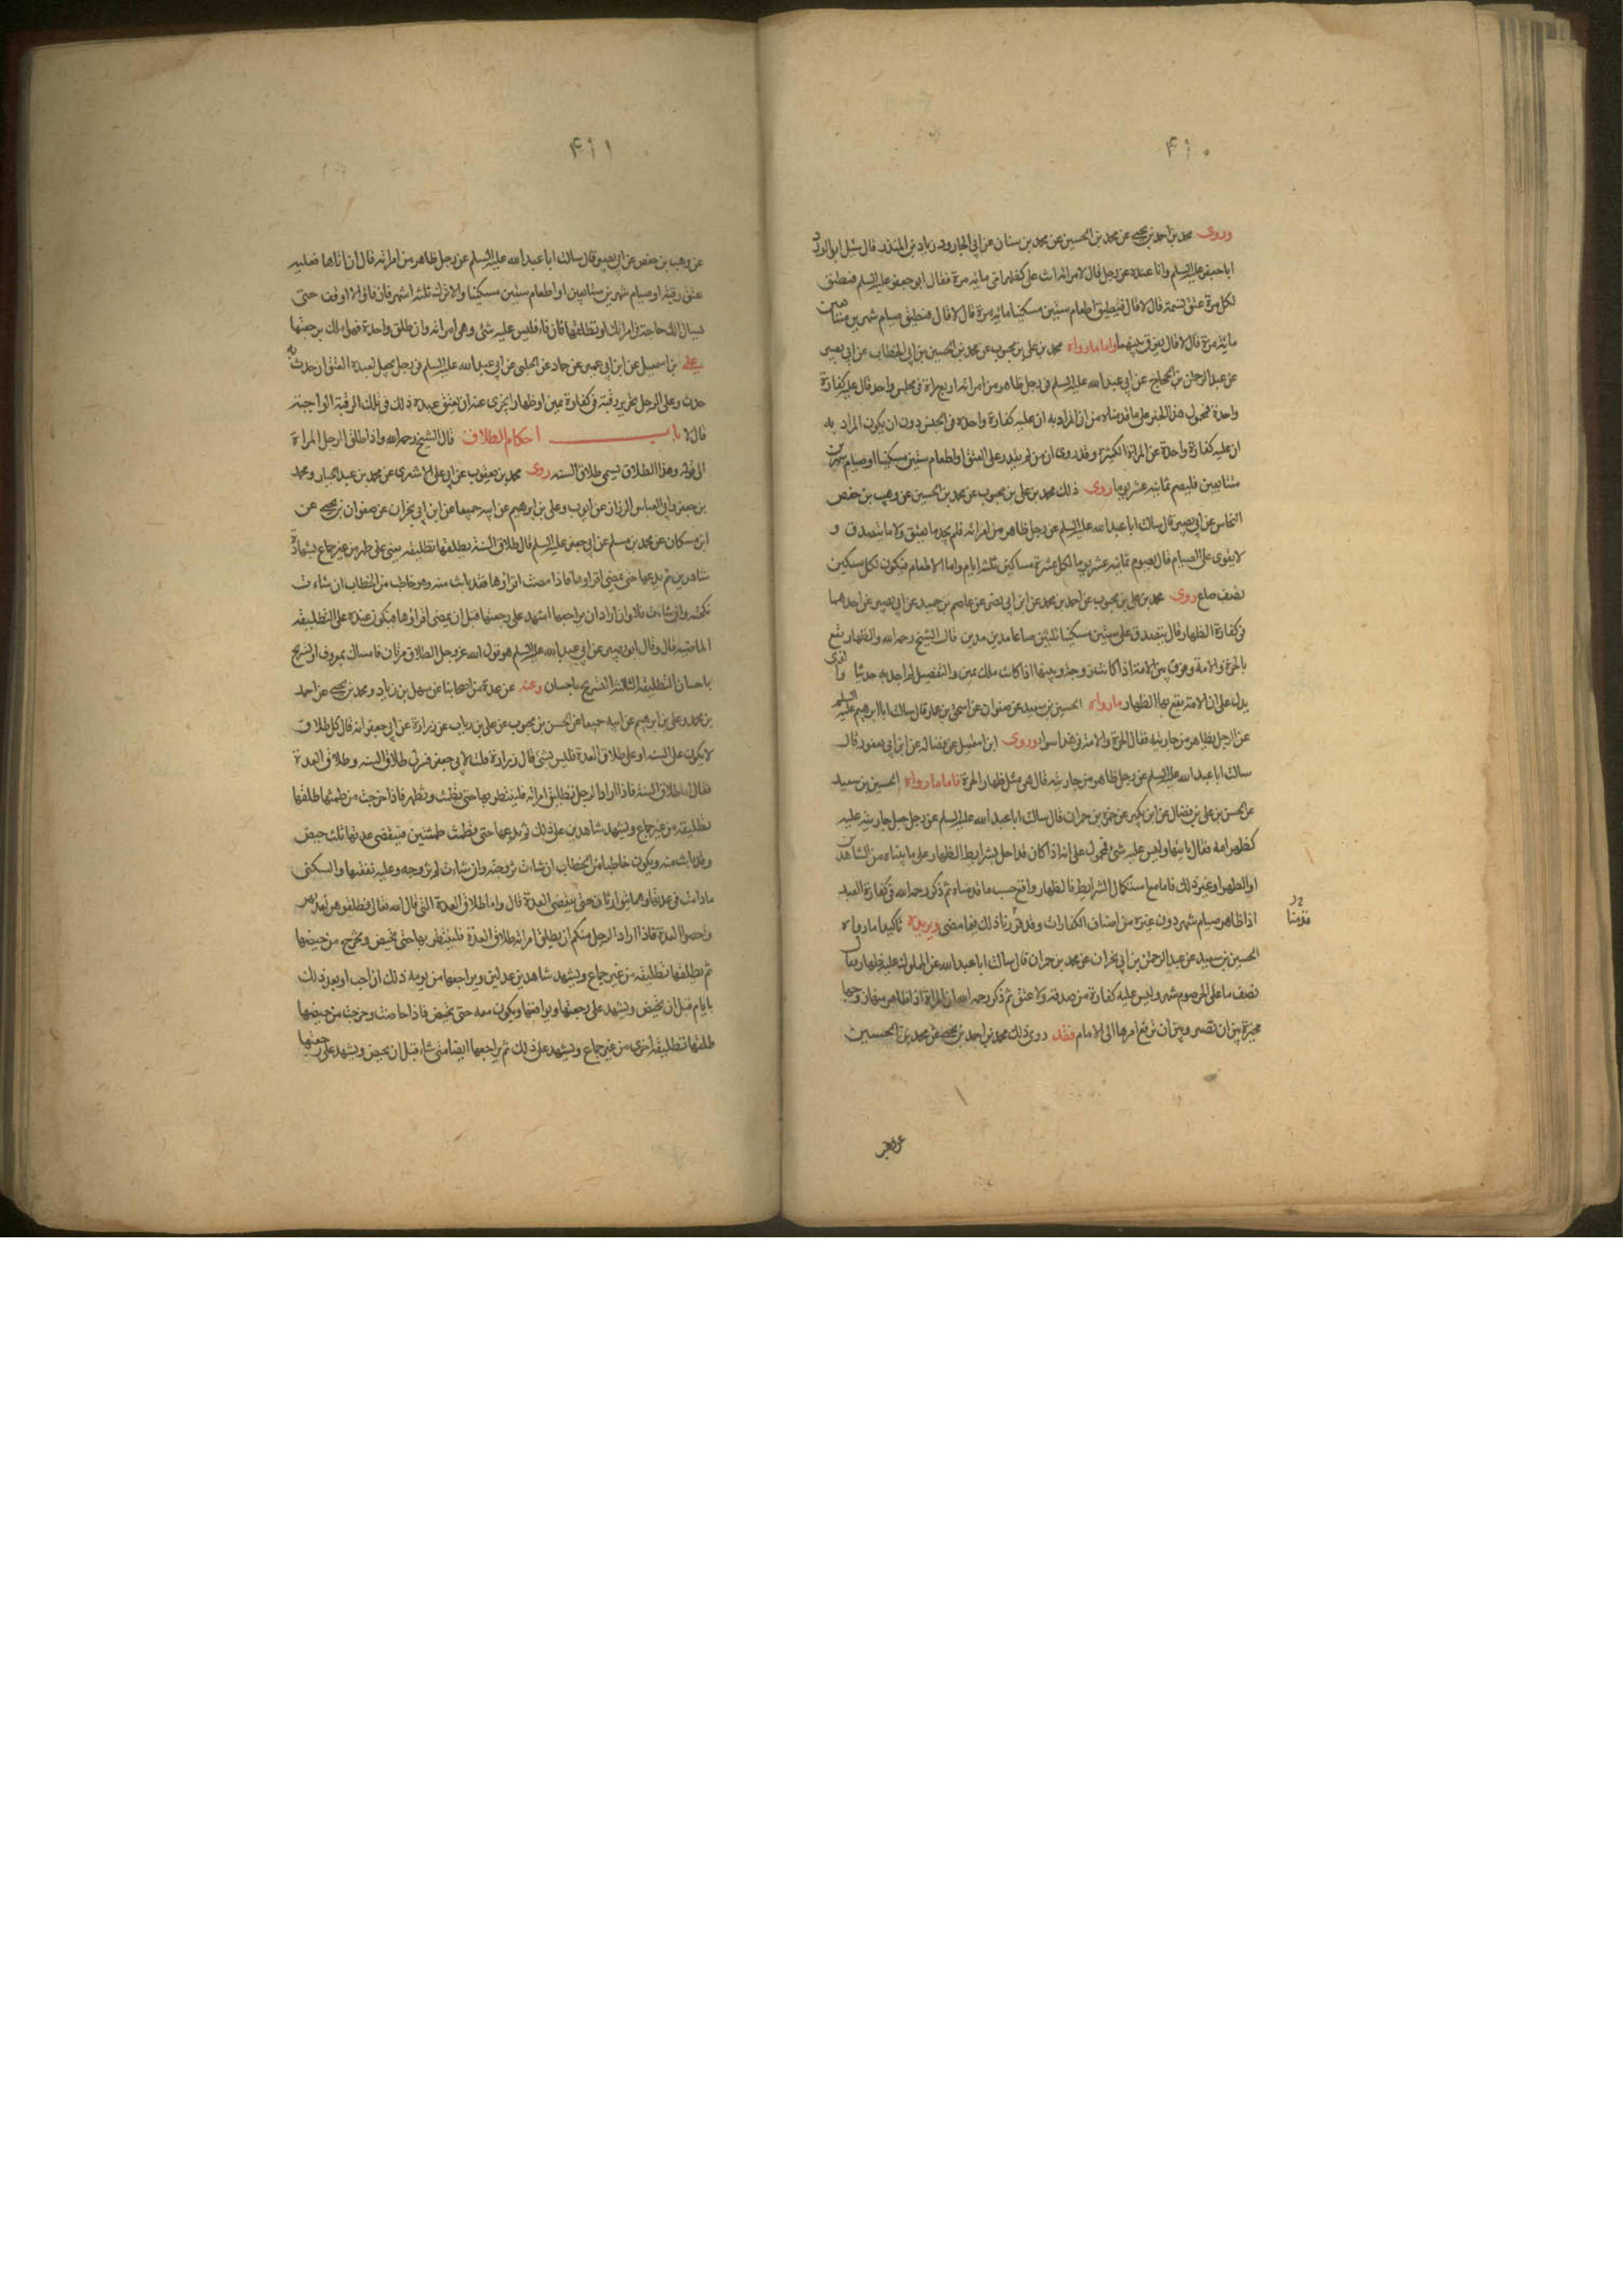 ۴۱۰
وروى محمد بن احمد بن يحيى عن محمد بن الحسين عن محمد بن سنان عن ابى الجارود زياد بن المنذر قال سئل ابو الورد
ابا جعفر عليه السلم وانا عنده عن رجل قال لامراته انت على كظهر امى مائة مرة فقال ابو جعفر عليه السلم فتطيق
لكل مرة عتق نسمة قال لا قال فتطيق اطعام ستين مسكينا مائة مرة قال لا قال فتطيق صيام شهرين متتابعين
مائة مرة قال لا قال يفرق بينهما واما ما رواه محمد بن على بن محبوب عن محمد بن الحسين بن ابى الخطاب عن ابى بصير
عن عبد الرحمن بن الحجاج عن ابى عبد الله عليه السلم فى رجل ظاهر من امراته اربع مراة فى مجلس واحد قال عليه كفارة
واحدة فمحول هذا الخبر على ما قدمناه من ان المراد به ان عليه كفارة واحدة فى الجنس دون ان يكون المراد به
ان عليه كفارة واحدة عن المراة الكثيرة وقد روى ان من لم يقدر على العتق او اطعام ستين مسكينا او صيام شهرين
متتابعين فليصم ثمانية عشر يوما روى ذلك محمد بن على بن محبوب عن محمد بن الحسين عن وهيب بن حفص
النخاس عن ابى بصير قال سالت ابا عبد الله عليه السلم عن رجل ظاهر من امراته فلم يجد ما يعتق ولا ما يتصدق و
لا يقوى على الصيام قال يصوم ثمانية عشر يوما لكل عشرة مساكين ثلثة ايام واما الاطعام فيكون لكل مسكين
نصف صاع روى محمد بن على بن محبوب عن احمد بن محمد عن ابن ابى نصر عن عاصم بن حميد عن ابى بصير عن احدهما
فى كفارة الظهار قال يتصدق على ستين مسكينا ثلثين صاعا مدين مدين قال الشيخ رحمه الله والظهار يقع
بالحرة والامة وفرق بين الامة اذا كانت زوجة وبينها اذا كانت ملك يمين والتفصيل لم اجد به حديثا والذى
يدل على ان الامة يقع بها الظهار ما رواه الحسين بن سعيد عن صفوان عن اسحق بن عمار قال سالت ابا ابرهيم عليه السلم
عن الرجل يظاهر من جاريته فقال الحرة والامة فى هذا سواء وروى ابن فضيل عن فضالة عن ابن ابى يعفور قال
سالت ابا عبد الله عليه السلم عن رجل ظاهر من جاريته قال هى مثل ظهار الحرة فاما ما رواه الحسين بن سعيد
عن الحسن بن على بن فضال عن ابن بكير عن حمزة بن حمران قال سالت ابا عبد الله عليه السلم عن رجل جعل جاريته عليه
كظهر امه فقال ياتيها وليس عليه شئ فمحمول على انه اذا كان قد اخل بشرايط الظهار على ما بيناه من الشاهدين
او الطهر او غير ذلك فاما مع استكمال الشرايط فالظهار واقع حسب ما قدمناه ثم ذكر رحمه الله فى كفارة العبد
اذا ظاهر صيام شهر دون غيره من اصناف الكفارات وقد قررنا ذلك فيما مضى ويزيده تاكيدا ما رواه
قدمنا
الحسين بن سعيد عن عبد الرحمن بن ابى نجران عن محمد بن حمران قال سالت ابا عبد الله عن المملوك عليه ظهار فقال
نصف ما على الحر صوم شهر وليس عليه كفارة من صدقة ولا عتق ثم ذكر رحمه الله ان المراة اذا ظاهر منها زوجها
مخيرة بين ان تصبر وبين ان ترفع امرها الى الامام فقد روى ذلك محمد بن احمد بن يحيى عن محمد بن الحسين
عن وهيب
۴۱۱
عن وهيب بن حفص عن ابى بصير قال سالت ابا عبد الله عليه السلم عن رجل ظاهر من امراته قال ان اتاها فعليه
عتق رقبة او صيام شهرين متتابعين او اطعام ستين مسكينا والا ترك ثلثة اشهر فان فاء والا اوقف حتى
يسال لك حاجة فى امراتك او تطلقها فان فاء فليس عليه شئ وهى امراته وان طلق واحدة فهو املك برجعتها
على بن اسمعيل عن ابن ابى عمير عن حماد عن الحلبى عن ابى عبد الله عليه السلم فى رجل يجعل لعبده العتق ان حدث به
حدث وعلى الرجل تحرير رقبة فى كفارة يمين او ظهار ايجزى عنه ان يعتق عبده ذلك فى تلك الرقبة الواجبة
قال لا باب احكام الطلاق قال الشيخ رحمه الله واذا طلق الرجل المراة
الى قوله وهذا الطلاق يسمى طلاق السنة روى محمد بن يعقوب عن ابى على الاشعرى عن محمد بن عبد الجبار ومحمد
بن جعفر وابى العباس الرزاز عن ايوب وعلى بن ابرهيم عن ابيه جميعا عن ابن ابى نجران عن صفوان بن يحيى عن
ابن مسكان عن محمد بن مسلم عن ابى جعفر عليه السلم قال طلاق السنة يطلقها تطليقة يعنى على طهر من غير جماع بشهادة
شاهدين ثم يدعها حتى تمضى اقراوها فاذا مضت اقراؤها فقد بانت منه وهو خاطب من الخطاب ان شاءت
نكحته وان شاءت فلا وان اراد ان يراجعها اشهد على رجعتها قبل ان تمضى اقراؤها فتكون عنده على التطليقة
الماضية قال وقال ابو بصير عن ابى عبد الله عليه السلم هو قول الله عز وجل الطلاق مرتان فامساك بمعروف او تسريح
باحسان التطليقة الثالثة التسريح باحسان وعنه عن عدة من اصحابنا عن سهل بن زياد ومحمد بن يحيى عن احمد
بن محمد وعلى بن ابرهيم عن ابيه جميعا عن الحسن بن محبوب عن على بن رياب عن زرارة عن ابى جعفر انه قال كل طلاق
لا يكون على السنة او على طلاق العدة فليس بشئ قال زرارة قلت لابى جعفر فسر لى طلاق السنة وطلاق العدة
فقال اما طلاق السنة فاذا اراد الرجل ان يطلق امراته فلينتظر بها حتى تطمث وتطهر فاذا خرجت من طمثها طلقها
تطليقة من غير جماع ويشهد شاهدين على ذلك ثم يدعها حتى تطمث طمثتين فتنقضى عدتها بثلث حيض
وقد بانت منه ويكون خاطبا من الخطاب ان شاءت تزوجته وان شاءت لم تزوجه وعليه نفقتها والسكنى
مادامت فى عدتها وهما يتوارثان حتى تنقضى العدة قال واما طلاق العدة التى قال الله تعالى فطلقوهن لعدتهن
واحصوا العدة فاذا اراد الرجل منكم ان يطلق امراته طلاق العدة فلينتظر بها حتى تحيض وتخرج من حيضها
ثم يطلقها تطليقة من غير جماع ويشهد شاهدين عدلين ويراجعها من يومه ذلك ان احب او بعد ذلك
بايام قبل ان تحيض ويشهد على رجعتها ويواقعها ويكون معه حتى تحيض فاذا حاضت وخرجت من حيضها
طلقها تطليقة اخرى من غير جماع ويشهد على ذلك ثم يراجعها ايضا متى شاء قبل ان تحيض ويشهد على رجعتها